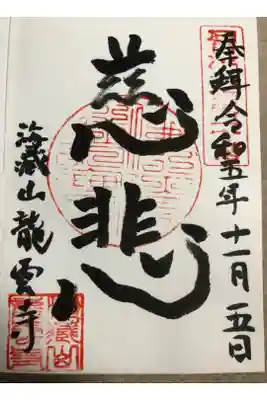 奉拝 令和五年十一月五日
慈悲
海藏山龍雲寺